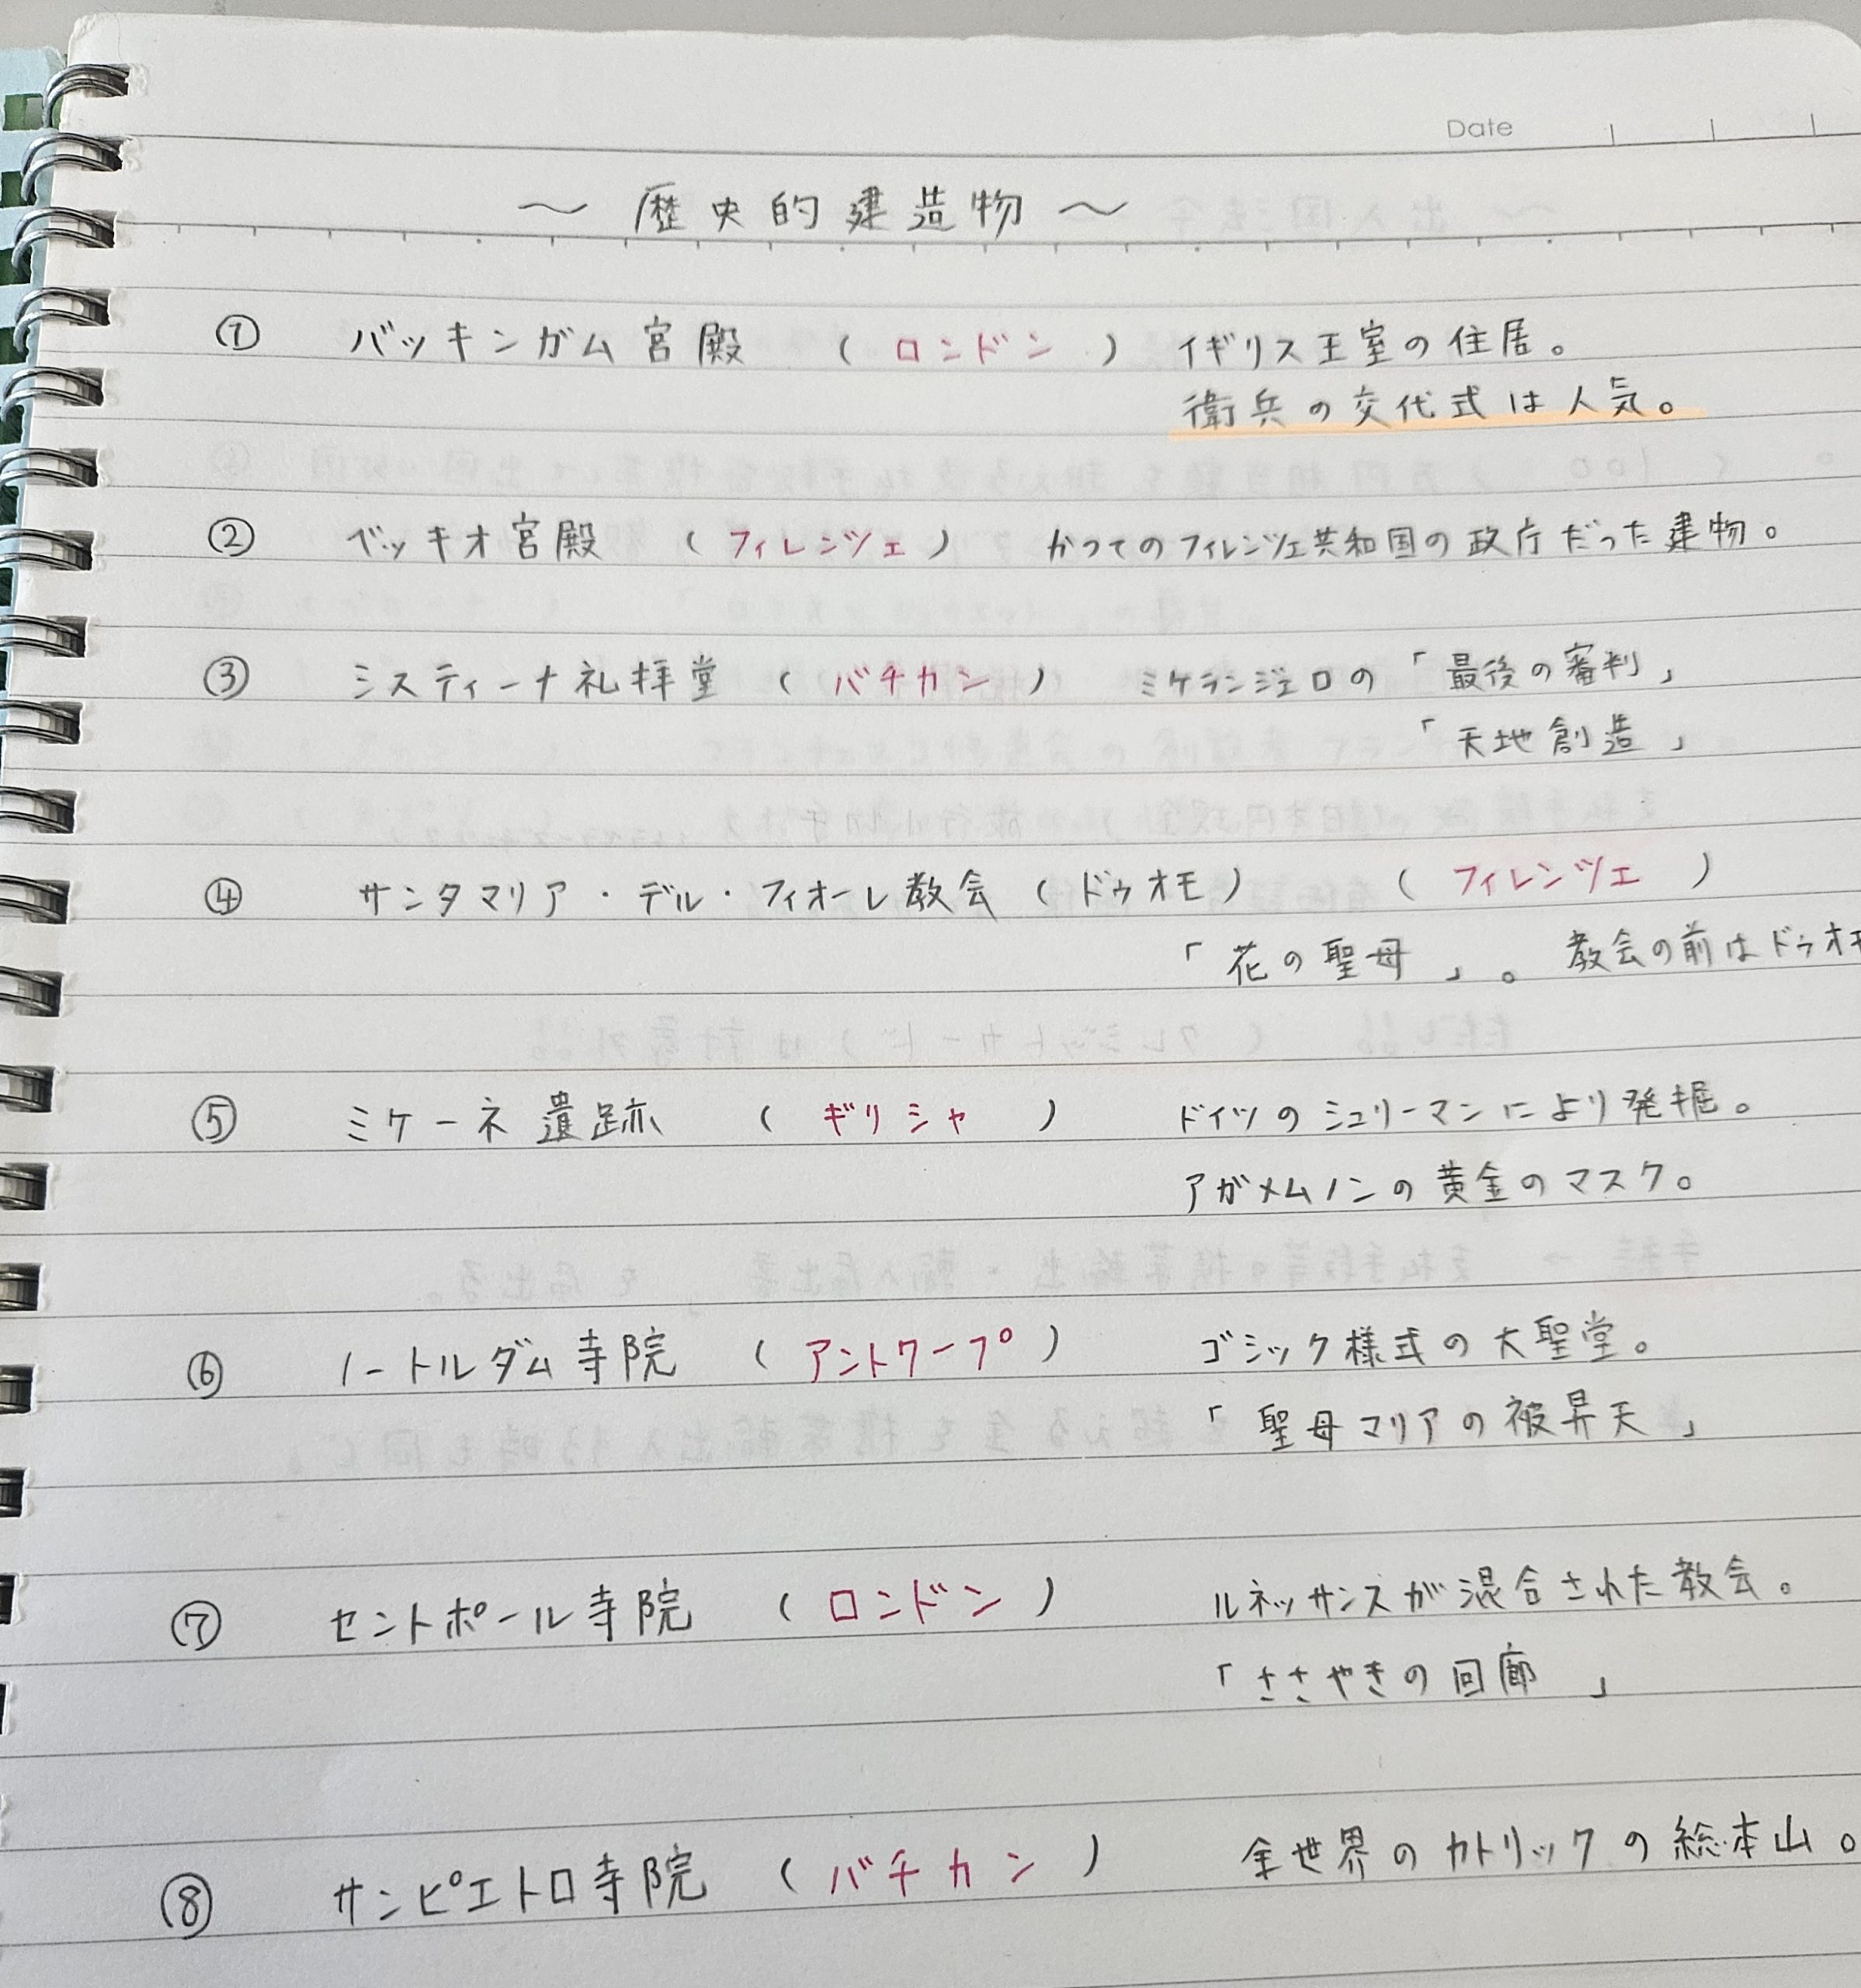 Date
～ 歴史的建造物 ～
① バッキンガム宮殿 ( ロンドン ) イギリス王室の住居。
衛兵の交代式は人気。
② ベッキオ宮殿 ( フィレンツェ ) かつてのフィレンツェ共和国の政庁だった建物。
③ システィーナ礼拝堂 ( バチカン ) ミケランジェロの 「最後の審判」
「天地創造」
④ サンタマリア・デル・フィオーレ教会 ( ドゥオモ ) ( フィレンツェ )
「花の聖母 」。 教会の前はドゥオモ
⑤ ミケーネ遺跡 ( ギリシャ ) ドイツのシュリーマンにより発掘。
アガメムノンの黄金のマスク。
⑥ ノートルダム寺院 ( アントワープ ) ゴシック様式の大聖堂。
「聖母マリアの被昇天」
⑦ セントポール寺院 ( ロンドン ) ルネッサンスが混合された教会。
「ささやきの回廊 」
⑧ サンピエトロ寺院 ( バチカン ) 全世界のカトリックの総本山。